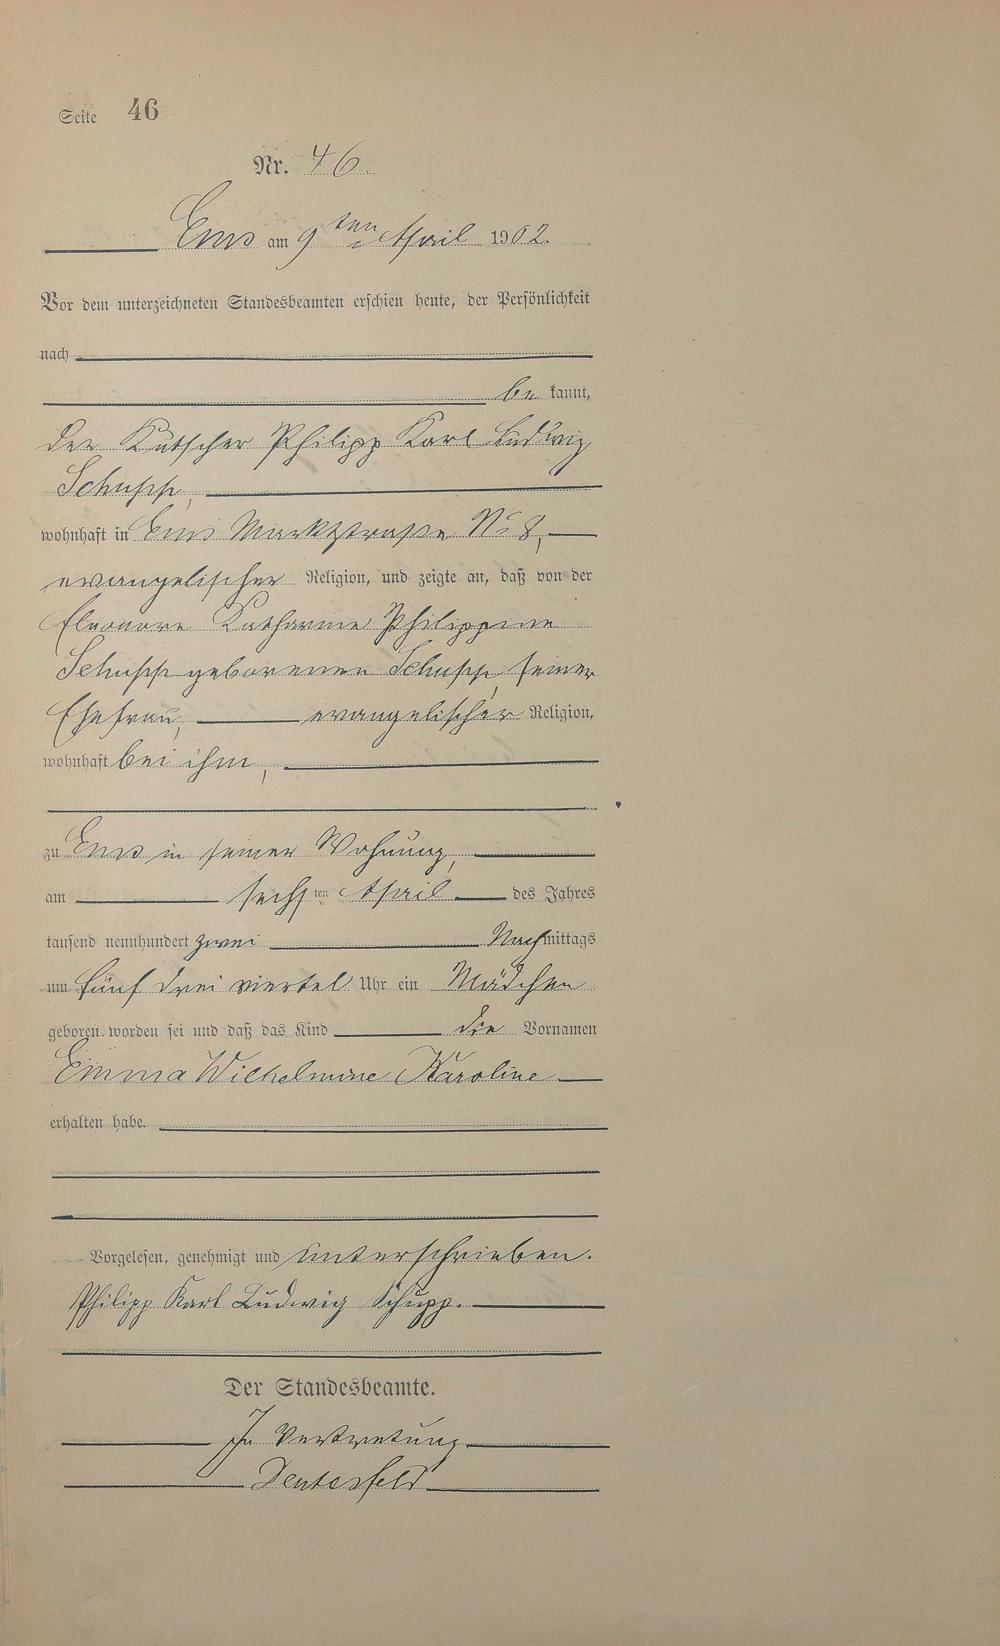 Seite 46
Nr. 46.
Ems am 9ten April 1902.
Vor dem unterzeichneten Standesbeamten erschien heute, der Persönlichkeit
nach
be kannt,
der Kutscher Philipp Karl Ludwig
Schupp,
wohnhaft in Ems Marktstraße No 8,
evangelischer Religion, und zeigte an, daß von der
Eleonore Katharine Philippine
Schupp geborenen Schupp, seiner
Ehefrau, evangelischer Religion,
wohnhaft bei ihm,
zu Ems in seiner Wohnung,
am sechsten April des Jahres
tausend neunhundert zwei Nachmittags
um fünf drei viertel Uhr ein Mädchen
geboren worden sei und daß das Kind die Vornamen
Emma Wilhelmine Karoline
erhalten habe.
Vorgelesen, genehmigt und unterschrieben.
Philipp Karl Ludwig Schupp.
Der Standesbeamte.
In Vertretung